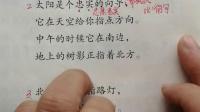 2 太阳是个忠实的向导,
它在天空给你指点方向。
中午的时候它在南边,
地上的树影正指着北方。
3 北
指路灯,